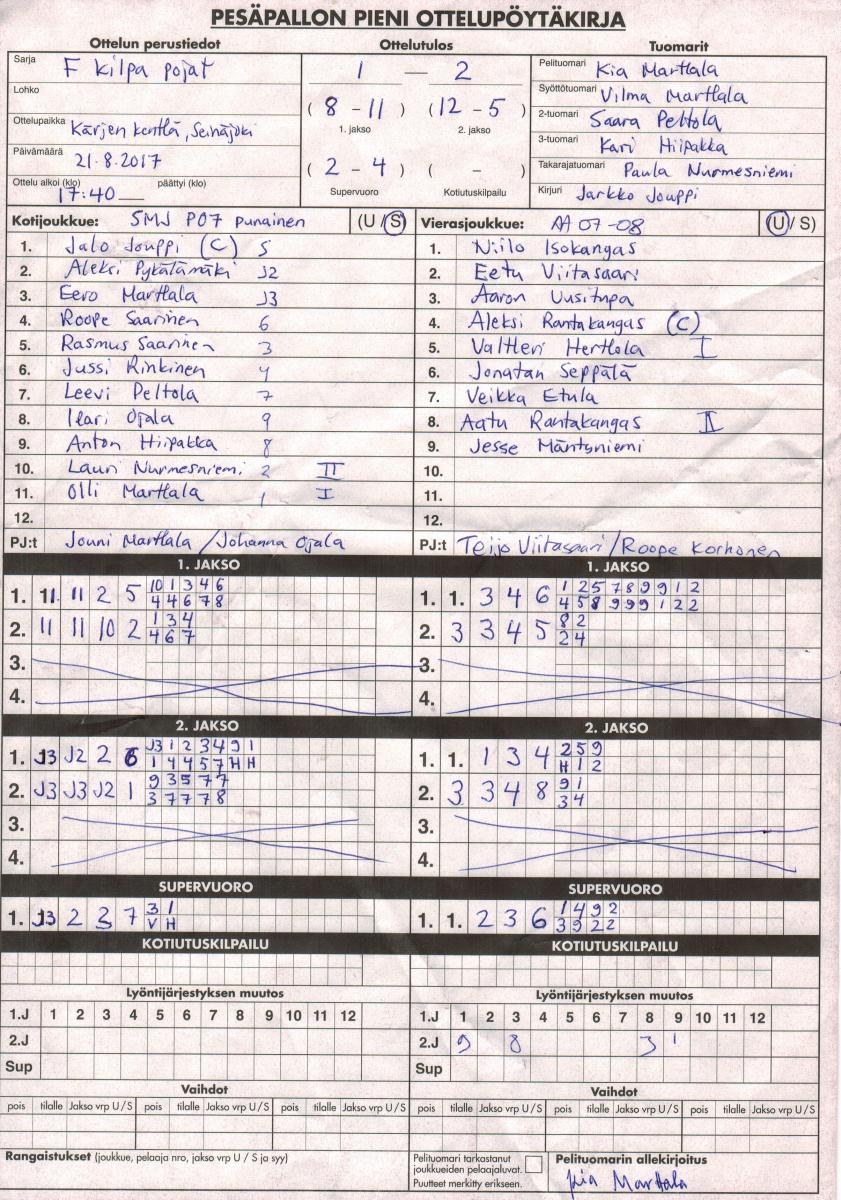 PESÄPALLON PIENI OTTELUPÖYTÄKIRJA
Ottelun perustiedot
Sarja F kilpa pojat
Lohko
Ottelupaikka Kärjen kenttä, Seinäjoki
Päivämäärä 21.8.2017
Ottelu alkoi (klo) 17:40 päättyi (klo)
Ottelutulos
1 — 2
( 8 - 11 ) ( 12 - 5 )
1. jakso 2. jakso
( 2 - 4 ) ( - )
Supervuoro Kotiutuskilpailu
Tuomarit
Pelituomari Kia Marttala
Syöttötuomari Vilma Marttala
2-tuomari Saara Peltola
3-tuomari Kari Hiipakka
Takarajatuomari Paula Nurmesniemi
Kirjuri Jarkko Jouppi
Kotijoukkue: SMJ P07 Punainen (U / S)
1. Jalo Jouppi (C) 5
2. Aleksi Pykälämäki J2
3. Eero Marttala J3
4. Roope Saarinen 6
5. Rasmus Saarinen 3
6. Jussi Rinkinen 4
7. Leevi Peltola 7
8. Ilari Ojala 9
9. Anton Hiipakka 8
10. Lauri Nurmesniemi 2 II
11. Olli Marttala 1 I
12.
PJ:t Jouni Marttala / Johanna Ojala
Vierasjoukkue: AA 07-08 (U / S)
1. Niilo Isokangas
2. Eetu Viitasaari
3. Aaron Uusitupa
4. Aleksi Rantakangas (C)
5. Valtteri Herttola I
6. Jonatan Seppälä
7. Veikka Etula
8. Aatu Rantakangas II
9. Jesse Mäntyniemi
10.
11.
12.
PJ:t Teijo Viitasaari / Roope Korhonen
1. JAKSO
1. 11 11 2 5 10 1 3 4 6
4 4 6 7 8
2. 11 11 10 2 1 3 4
4 6 7
3.
4.
1. JAKSO
1. 1. 3 4 6 1 2 5 7 8 9 9 1 2
4 5 8 9 9 9 1 2 2
2. 3 3 4 5 8 2
2 4
3.
4.
2. JAKSO
1. J3 J2 2 6 J3 1 2 3 4 9 1
1 4 4 5 7 H H
2. J3 J3 J2 1 9 3 5 7 7
3 7 7 7 8
3.
4.
2. JAKSO
1. 1. 1 3 4 2 5 9
H 1 2
2. 3 3 4 8 9 1
3 4
3.
4.
SUPERVUORO
1. J3 2 3 7 3 1
V H
SUPERVUORO
1. 1. 2 3 6 1 4 9 2
3 9 2 2
KOTIUTUSKILPAILU
KOTIUTUSKILPAILU
Lyöntijärjestyksen muutos
1.J 1 2 3 4 5 6 7 8 9 10 11 12
2.J
Sup
Lyöntijärjestyksen muutos
1.J 1 2 3 4 5 6 7 8 9 10 11 12
2.J 9 8 3 1
Sup
Vaihdot
pois tilalle Jakso vrp U / S pois tilalle Jakso vrp U / S pois tilalle Jakso vrp U / S
Vaihdot
pois tilalle Jakso vrp U / S pois tilalle Jakso vrp U / S pois tilalle Jakso vrp U / S
Rangaistukset (joukkue, pelaaja nro, jakso vrp U / S ja syy)
Pelituomari tarkastanut
joukkueiden pelaajaluvat.
Puutteet merkitty erikseen.
Pelituomarin allekirjoitus
Kia Marttala